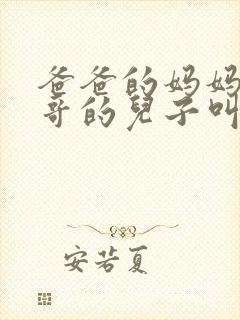 爸爸的妈妈
哥的兒子叫
安若夏